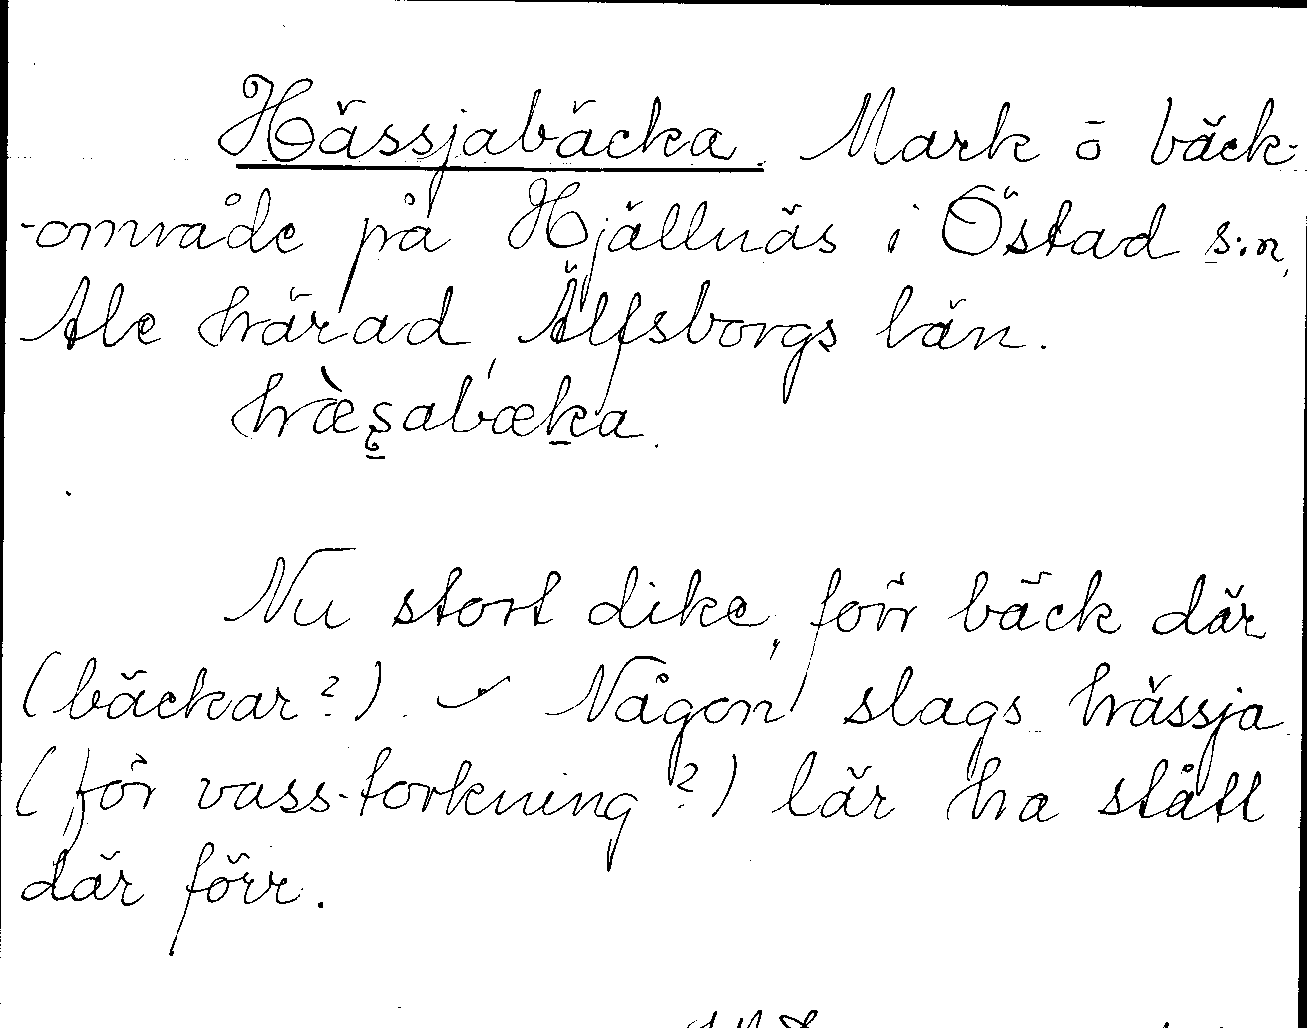 Hässjabäcka. Mark ō bäck-
-område på Hjällnäs i Östad s:n,
Ale härad, Älfsborgs län.
hæ̀ʂabæka.
Nu stort dike, förr bäck där
(bäckar?). Någon slags hässja
(för vass-torkning?) lär ha stått
där förr.